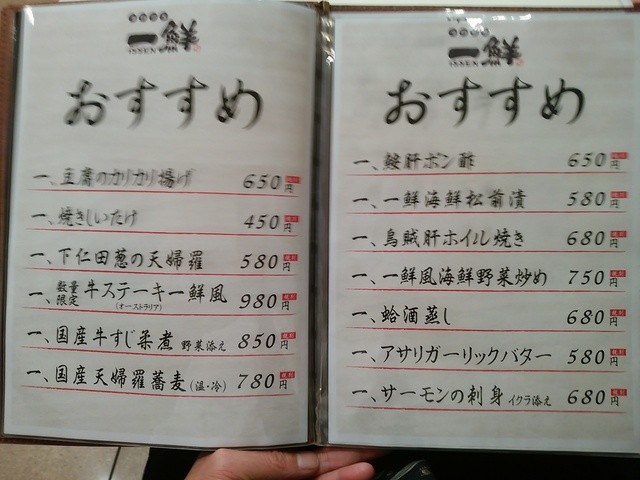 一鮮
ISSEN
おすすめ
一、豆腐のカリカリ揚げ 650円 税別
一、焼きしいたけ 450円 税別
一、下仁田葱の天婦羅 580円 税別
一、数量限定 牛ステーキ一鮮風 (オーストラリア) 980円 税別
一、国産牛すじ柔煮 野菜添え 850円 税別
一、国産天婦羅蕎麦(温・冷) 780円 税別
一鮮
ISSEN
おすすめ
一、鮟肝ポン酢 650円 税別
一、一鮮海鮮松前漬 580円 税別
一、烏賊肝ホイル焼き 680円 税別
一、一鮮風海鮮野菜炒め 750円 税別
一、蛤酒蒸し 680円 税別
一、アサリガーリックバター 580円 税別
一、サーモンの刺身 イクラ添え 680円 税別